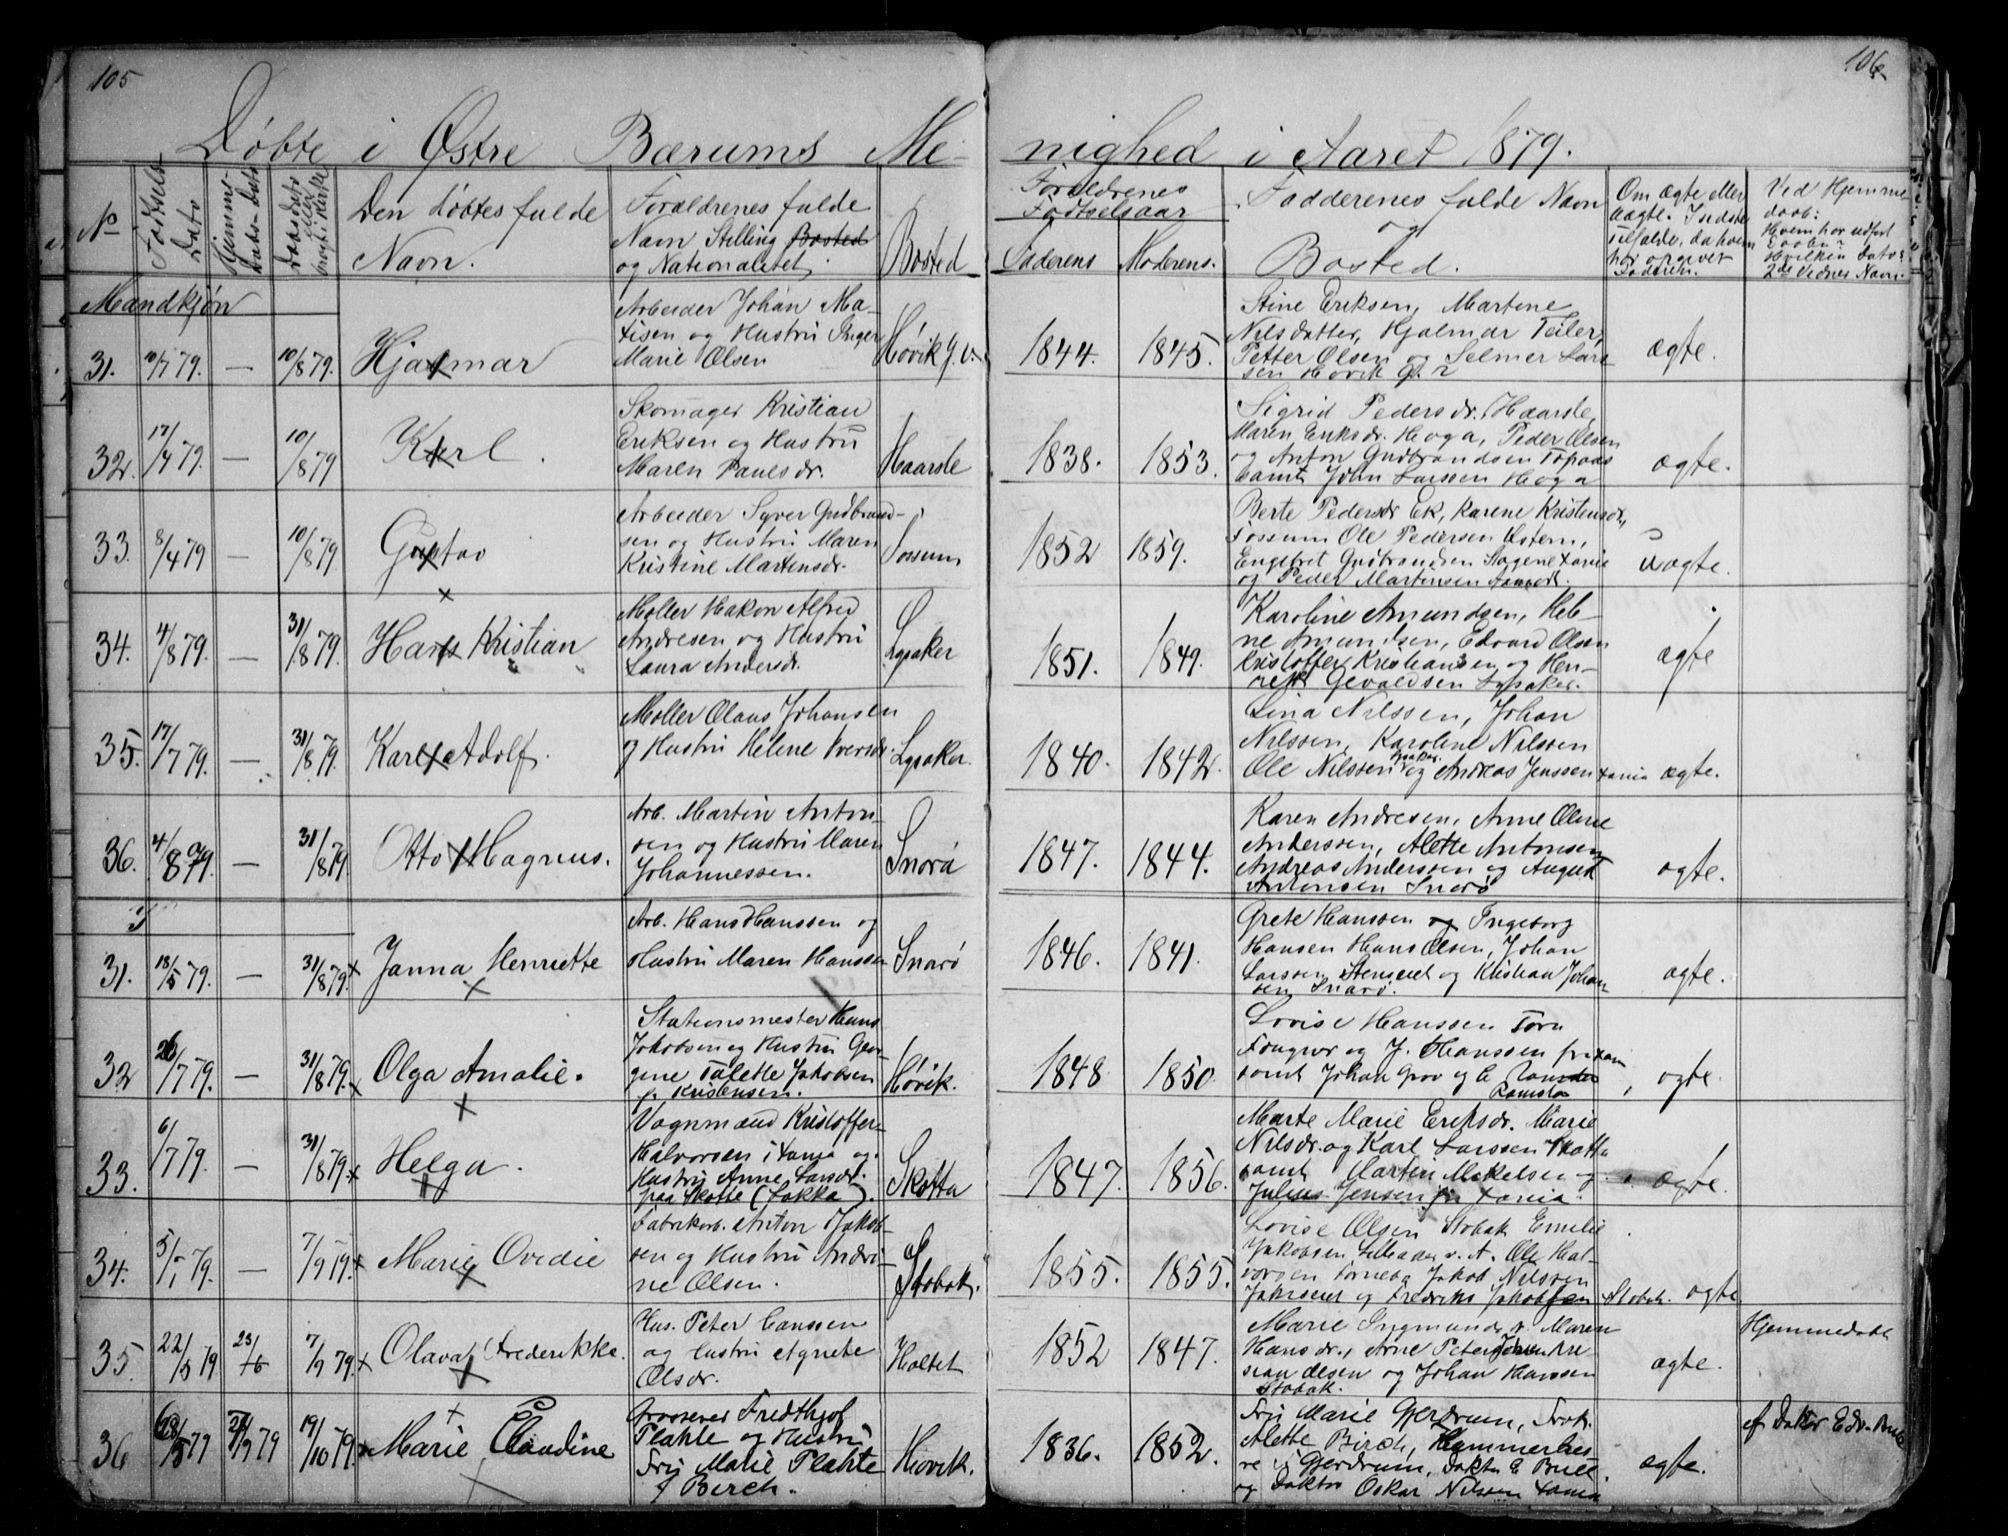 105
106
Døbte i Østre Bærums Me-
nighed i Aaret 1879.
No
Fødsels Dato
Hjemme-daabs-Dato
Daabsdato eller fremst. i Kirke
Den døbtes fulde Navn.
Forældrenes fulde
Navn Stilling Bosted
og Nationalitet.
Bosted
Forældrenes
Fødselsaar
Faderens
Moderens.
Fadderenes fulde Navn
og
Bosted.
Om ægte eller
uægte. I sidste
Tilfælde, da hvem
har opgivet
Faderen.
Ved Hjemme
daab:
Hvem har udført
Daaben?
Hvilken Dato?
2de Vidners Navn
Mandkjøn
31. 10/7 79. — 10/8 79. Hjalmar
Arbeider Johan Ma-
tisen og Hustru Inger
Marie Olsen
Høvik
1844. 1845.
Stine Eriksen, Martine
Nilsdatter, Hjalmar Teiler,
Petter Olsen og Selmer Lar
sen Høvik
ægte.
32. 17/4 79. — 10/8 79 Karl.
Skomager Kristian
Eriksen og Hustru
Maren Paulsdr.
Haarsle
1838. 1853.
Sigrid Pedersdr. Haarsle,
Maren Eriksdr. Hoga, Peder Olsen
og Anton Gudbrandsen Topaas
samt John Larssen Hoga
ægte.
33. 8/4 79 — 10/8 79. Gustav
Arbeider Syver Gudbrand-
sen og Hustru Maren
Kristine Martensdr.
Fossum
1852 1859.
Berte Pedersdr Ek, Karene Kristensdr,
Fossum Ole Pedersen Østern,
Engebret Gudbrandsen Xania
og Peder Martinsen
uægte.
34. 4/8 79. — 31/8 79. Hans Kristian
Møller Hakon Alfred
Andresen og Hustru
Laura Andersdr.
Lysaker
1851. 1849.
Karoline Amundsen, Hel-
ne Amundsen, Edvard Olsen
Kristoffer Kristiansen og Hen-
rik Gevaldsen Lysaker.
ægte
35. 17/7 79. — 31/8 79. Karl Adolf.
Møller Olaus Johansen
og Hustru Helene Iversdr.
Lysaker.
1840. 1842.
Lina Nilssen, Johan
Nilssen, Karoline Nilssen
Ole Nilssen Lysaker og Andreas Jenssen Xania
ægte.
36. 4/8 79. — 31/8 79 Otto Magnus.
Arb. Martin Anton-
sen og Hustru Maren
Johannessen.
Snarø
1847. 1844.
Karen Andresen, Anne Oline
Anderssen, Alette Antonsen,
Andreas Anderssen og August
Antonsen Snarø
ægte.
31. 18/5 79. — 31/8 79. Janna Henriette
Arb. Hans Hanssen og
Hustru Maren Hanssen
Snarø
1846. 1841.
Grete Hanssen og Ingeborg
Hansen Hans Olsen, Johan
Larssen Stenseiet og Kristian Johan
sen Snarø.
ægte.
32 26/7 79. — 31/8 79. Olga Amalie.
Stationsmester Hans
Jakobsen og Hustru Geor-
gine Talette Jakobsen
f. Kristensen.
Høvik.
1848 1850
Lovise Hanssen Torn
Fougner og J. Hanssen fra Xania
samt Johan Grov og C. Ramstad
ægte.
33. 6/7 79. — 31/8 79. Helga.
Vognmand Kristoffer
Halvorsen i Xania og
Hustru Anne Larsdr.
paa Skotte (Løkka).
Skotta
1847. 1856.
Marte Marie Eriksdr. Marie
Nilsdr. og Karl Larssen Skotta
samt Martin Mikelsen og
Julius Jensen fra Xania.
ægte.
34. 5/1 79. — 7/9 79. Marie Ovedie
Fabrikarb. Anton Jakob-
sen og Hustru Andri-
ne Olsen.
Stobak.
1855. 1855.
Lovise Olsen Stobak Emelie
Jakobsen Ole Hal-
vorsen Jakob Nilssen
og Fredrik Jakobsen Stobak.
ægte
35 22/5 79 23/6 7/9 79. Olava Frederikke.
Hus. Peter Hanssen
og Hustru Agnete
Olsdr.
Holtet
1852 1847.
Marie Ingmunds. Maren
Hansdr., Arne Petersen Kri-
stian Olsen og Johan Hanssen
Stobak.
ægte.
Hjemmedøbt
36 28/5 79 21/7 79 19/10 79. Marie Claudine
Grosserer Fredthjof
Plahte og Hustru
Fru Marie Plahte
f. Birch.
Høvik.
1836. 1852.
Fru Marie Gjerdrum, Frøk.
Alette Birch, Kammerher
re Gjerdrum, Doktor E Bull
og Doktor Oskar Nilssen Xania
ægte.
af Doktor Edv. Bull